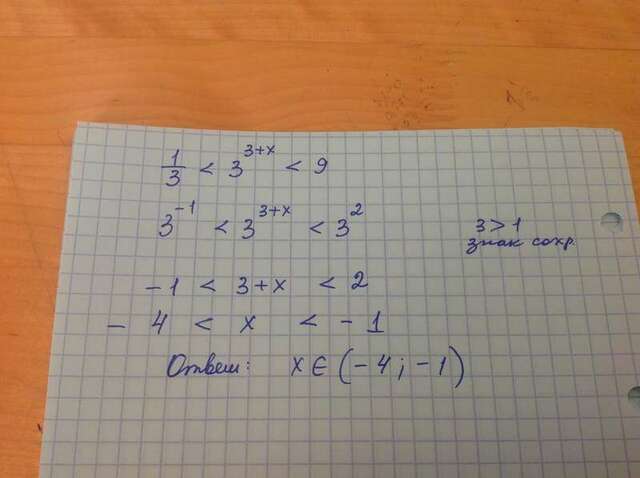 1/3 < 3^(3+x) < 9
3^(-1) < 3^(3+x) < 3^2
3 > 1
знак сохр.
-1 < 3+x < 2
-4 < x < -1
Ответ: x ∈ (-4; -1)